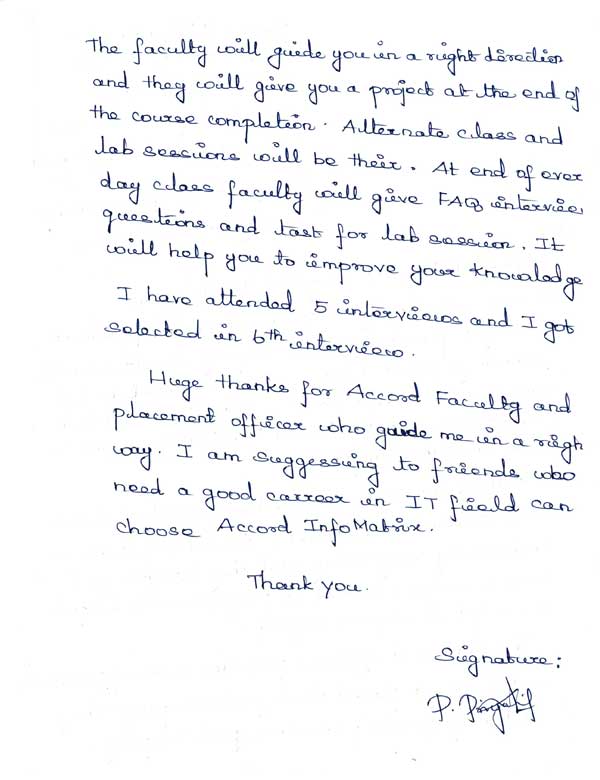 The faculty will guide you in a right direction
and they will give you a project at the end of
the course completion. Alternate class and
lab sessions will be their. At end of ever
day class faculty will give FAQ interview
questions and task for lab session. It
will help you to improve your knowledge
I have attended 5 interviews and I got
selected in 6th interview.
Huge thanks for Accord Faculty and
placement officer who guide me in a righ
way. I am suggessing to friends who
need a good carreer in IT field can
choose Accord InfoMatrix.
Thank you.
Signature:
P.